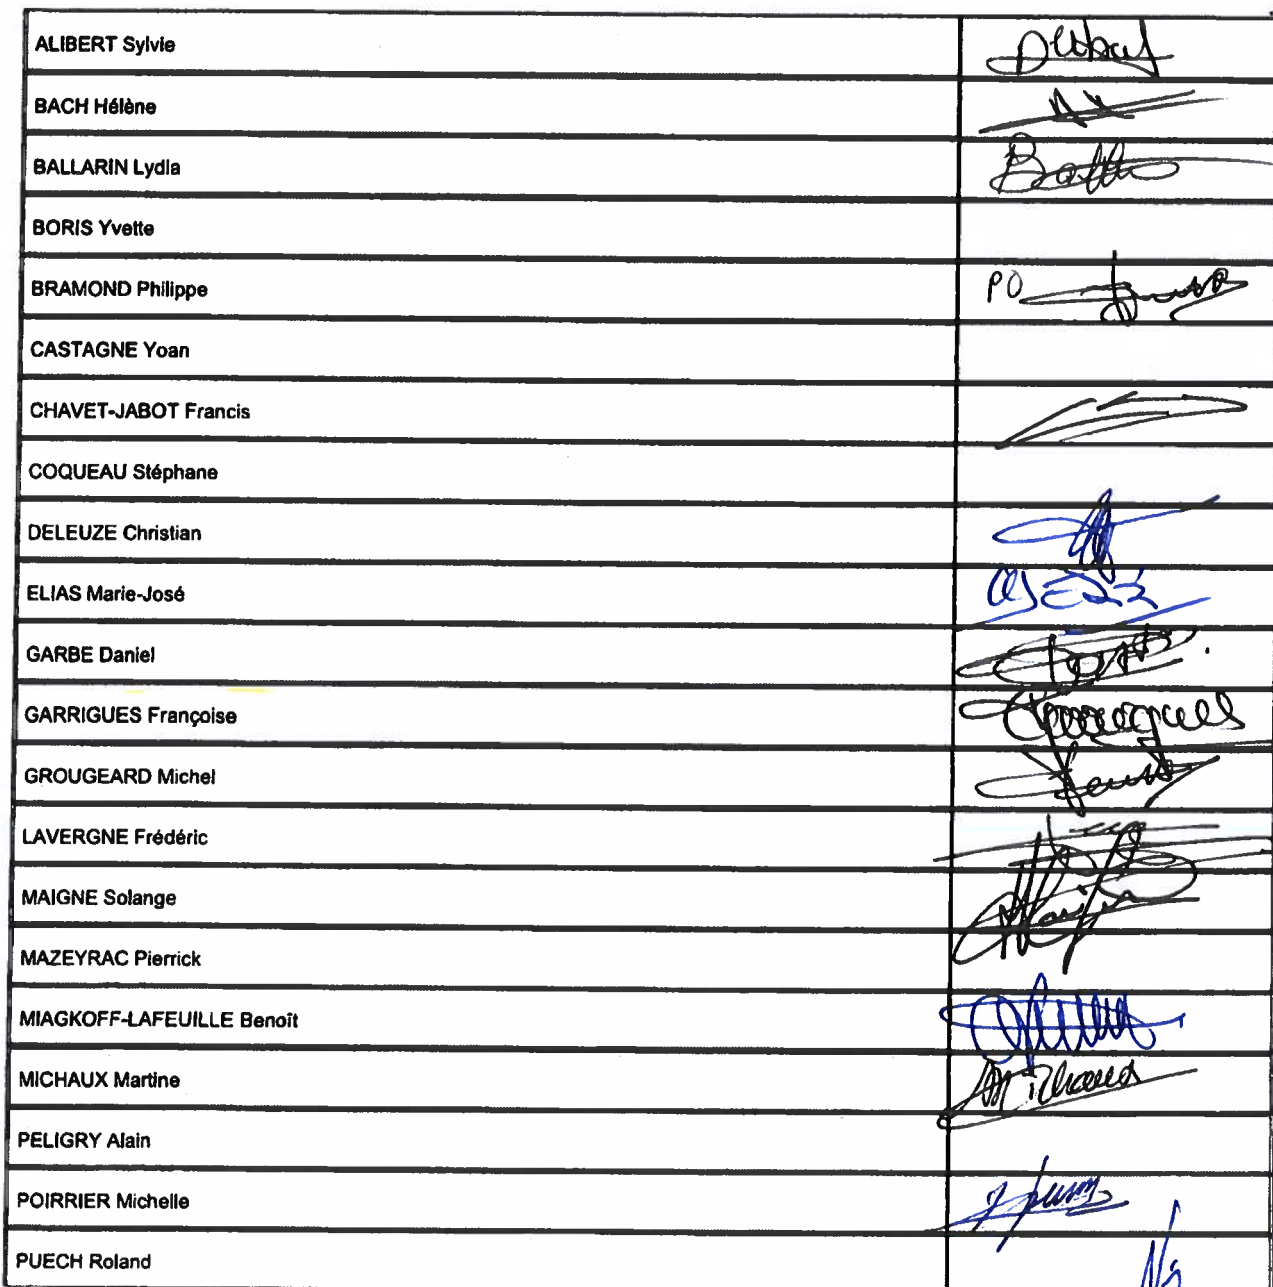 ALIBERT Sylvie
BACH Hélène
BALLARIN Lydia
BORIS Yvette
BRAMOND Philippe PO
CASTAGNE Yoan
CHAVET-JABOT Francis
COQUEAU Stéphane
DELEUZE Christian
ELIAS Marie-José
GARBE Daniel
GARRIGUES Françoise
GROUGEARD Michel
LAVERGNE Frédéric
MAIGNE Solange
MAZEYRAC Pierrick
MIAGKOFF-LAFEUILLE Benoît
MICHAUX Martine
PELIGRY Alain
POIRRIER Michelle
PUECH Roland